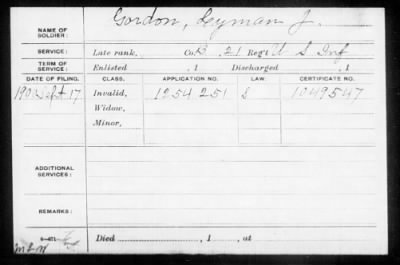 NAME OF SOLDIER: Gordon, Leyman J.
SERVICE: Late rank, Co. B, 21 Reg't U S Inf
TERM OF SERVICE: Enlisted , 1 Discharged , 1
DATE OF FILING. CLASS. APPLICATION NO. LAW. CERTIFICATE NO.
1900 Sept 17 Invalid, 1254251 S 1049547
Widow,
Minor,
ADDITIONAL SERVICES:
REMARKS:
Died , 1 , at